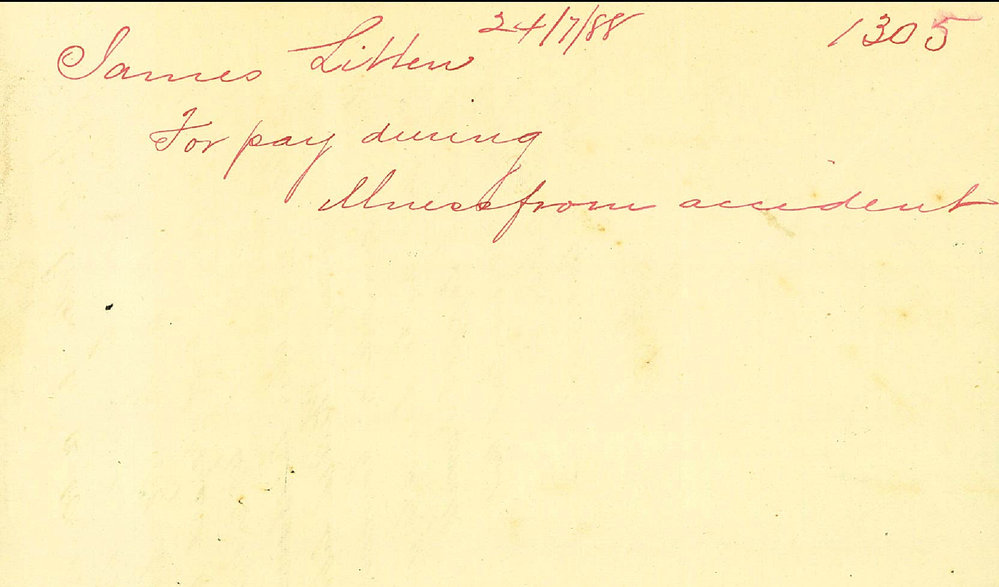 24/7/88 1305
James Litten
For pay during
illness from accident